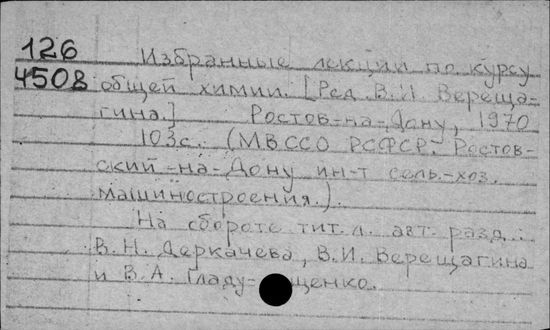 126 Избранные лекции по курсу
4508 общей химии. [Ред. В.И. Вереща-
гина.] Ростов-на-Дону, 1970
103с. (МВССО РСФСР. Ростов-
ский-на-Дону ин-т сель.-хоз.
машиностроения.).
На обороте тит. л. авт. разд.:
В.Н. Деркачева, В.И. Верещагина
и В.А. Гладу-щенко.